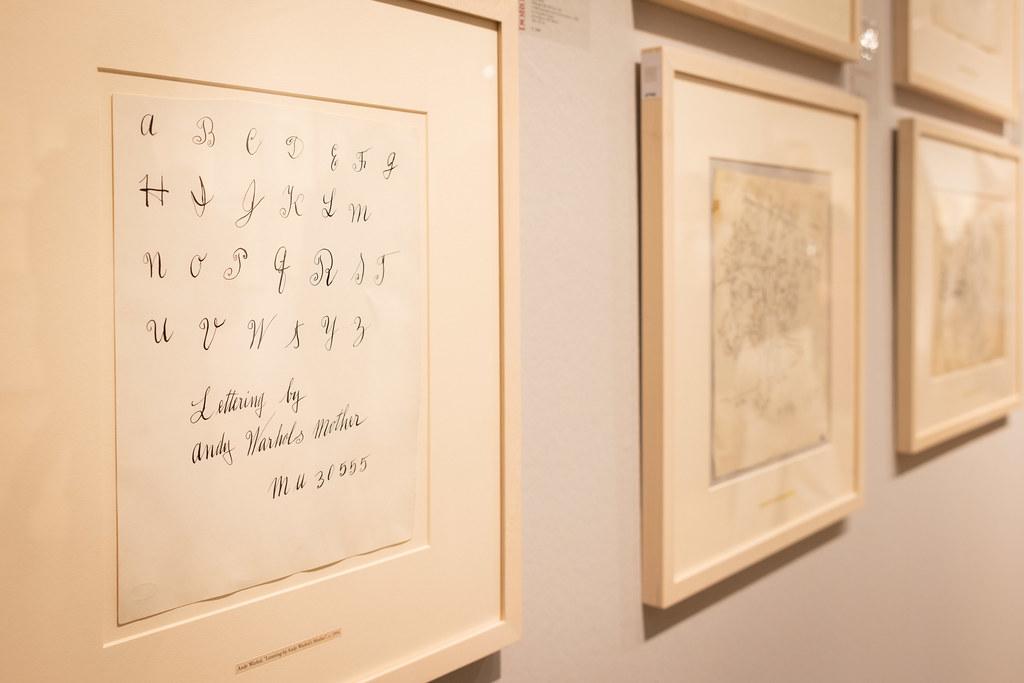 a B C D E F g
H I J K L m
N O P q R S T
U V W X Y Z
Lettering by
andy Warhols Mother
MU 30555
Andy Warhol, "Lettering by Andy Warhol's Mother", c. 195